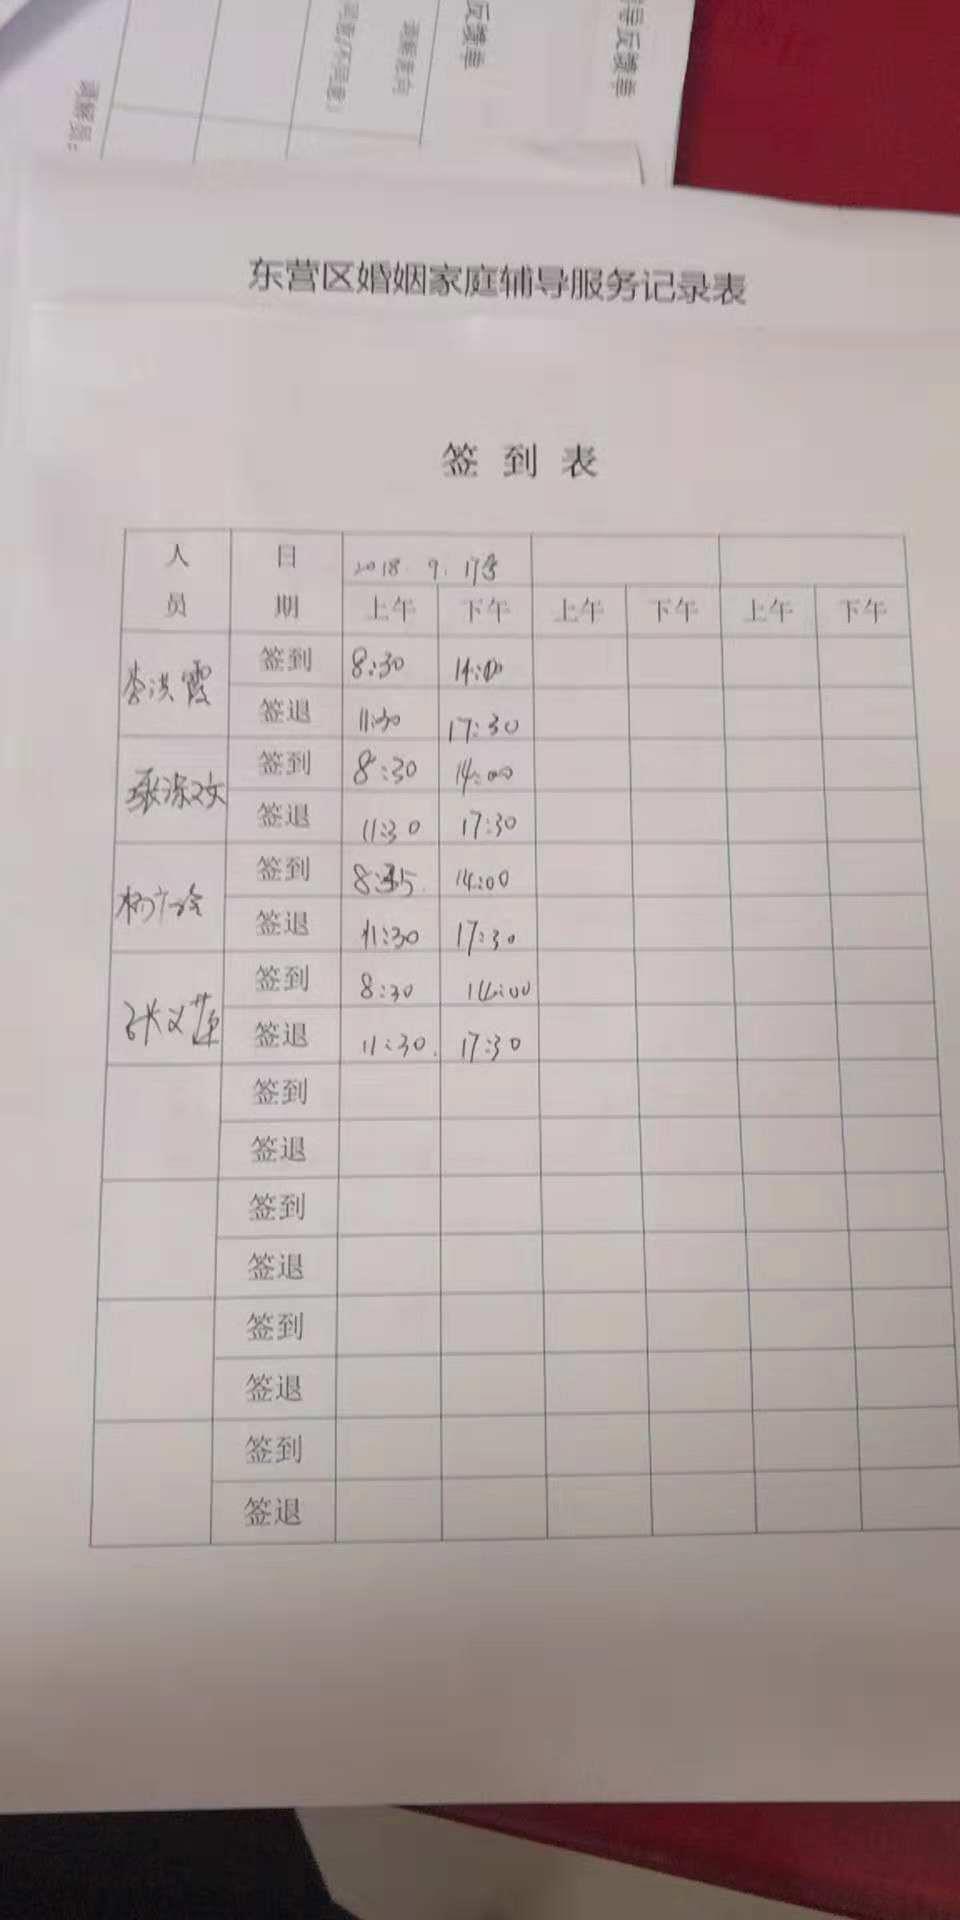 导反馈单
反馈单
调解意向
同意(不同意)
调解员:
东营区婚姻家庭辅导服务记录表
签 到 表
人员 日期 2018. 9. 17号
上午 下午 上午 下午 上午 下午
李洪霞 签到 8:30 14:00
签退 11:30 17:30
签到 8:30 14:00
签退 11:30 17:30
签到 14:00
签退 11:30 17:30
张义莲 签到 8:30 14:00
签退 11:30. 17:30
签到
签退
签到
签退
签到
签退
签到
签退